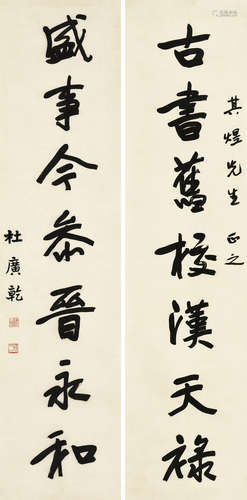 其煜先生正之
古書舊校漢天祿
盛事今參晉永和
杜廣乾